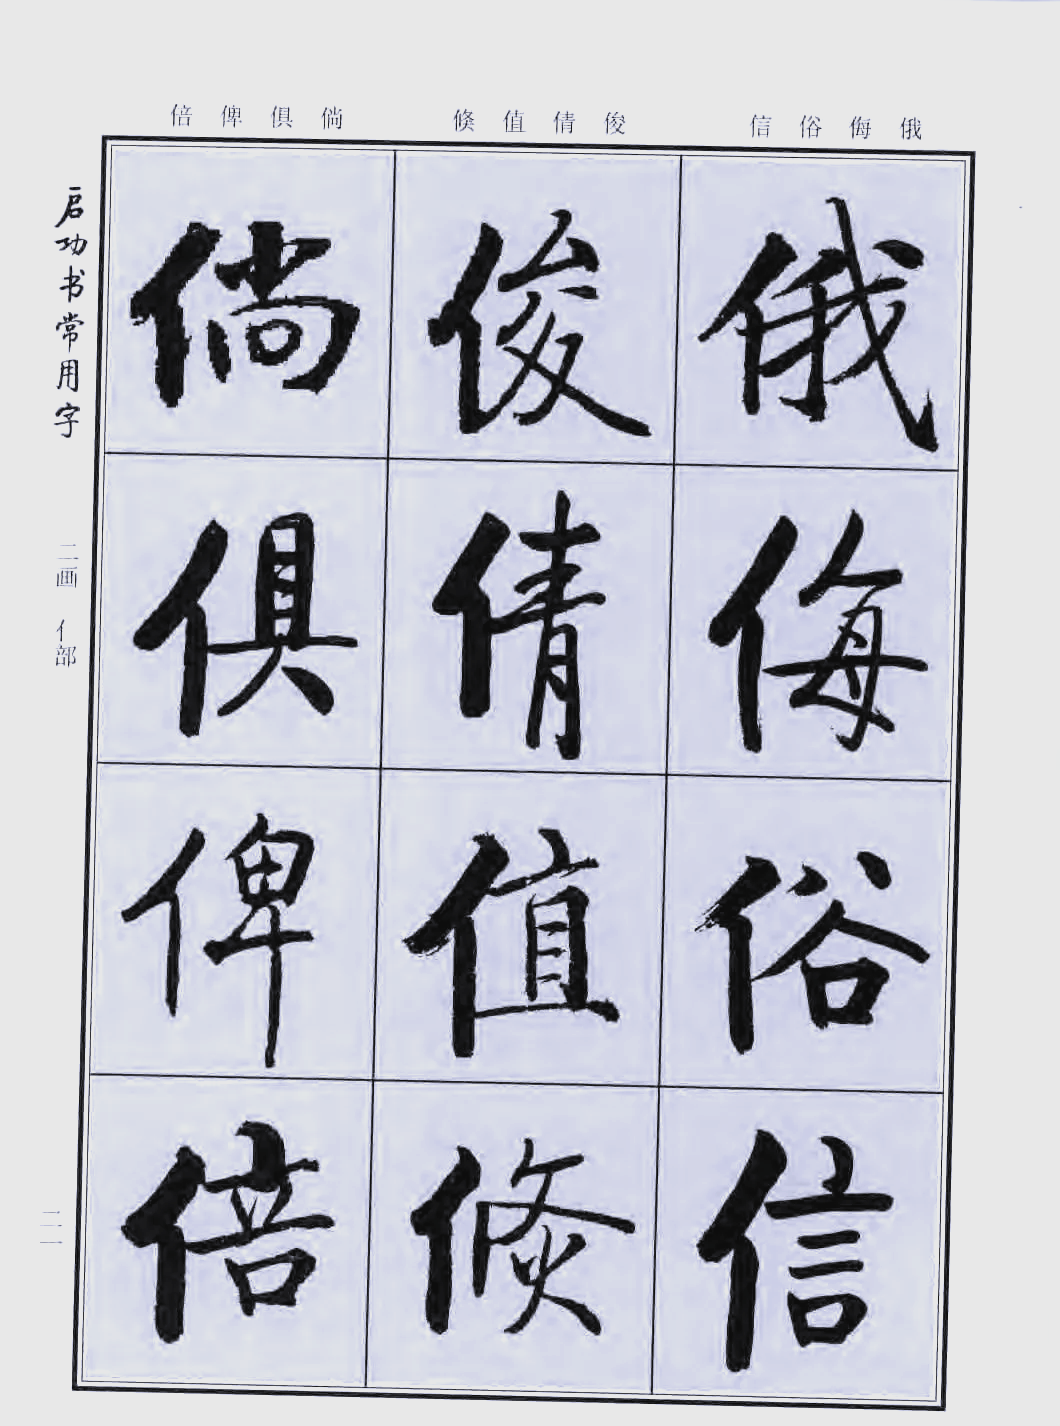 倍俾俱倘
倏值倩俊
信俗侮俄
俄侮俗信
俊倩值倏
倘俱俾倍
启功书常用字
二画 亻部
二一